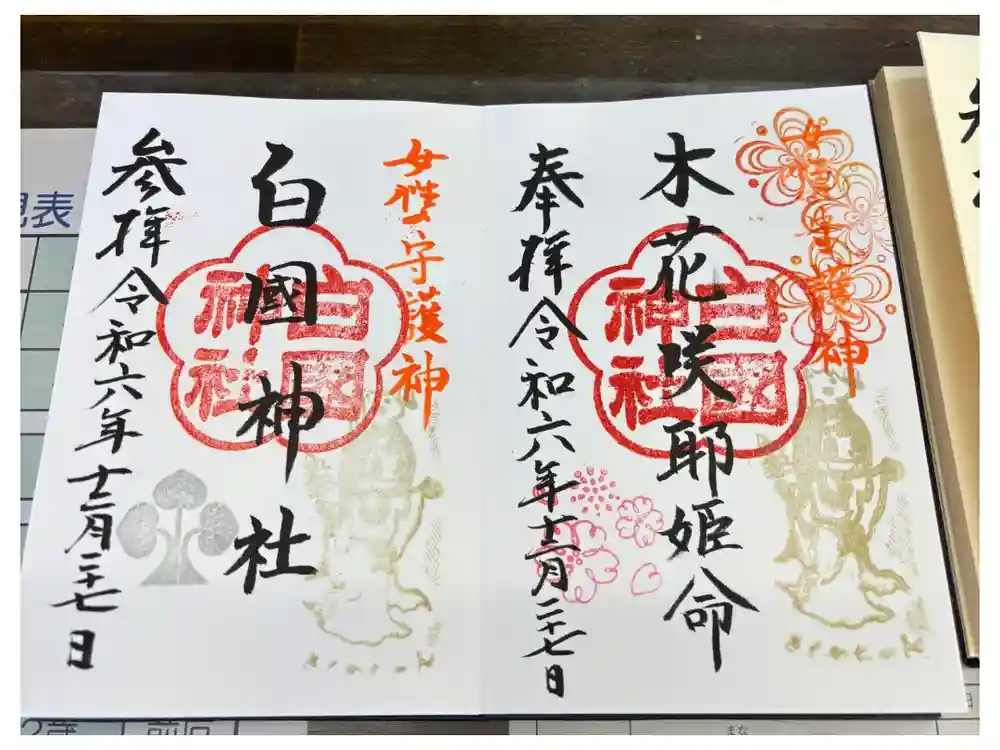 女性守護神
木花咲耶姫命
白國
神社
奉拝令和六年十二月二十七日
女性守護神
白國神社
白國
神社
參拝令和六年十二月二十七日
見表
2歳
前回
まな